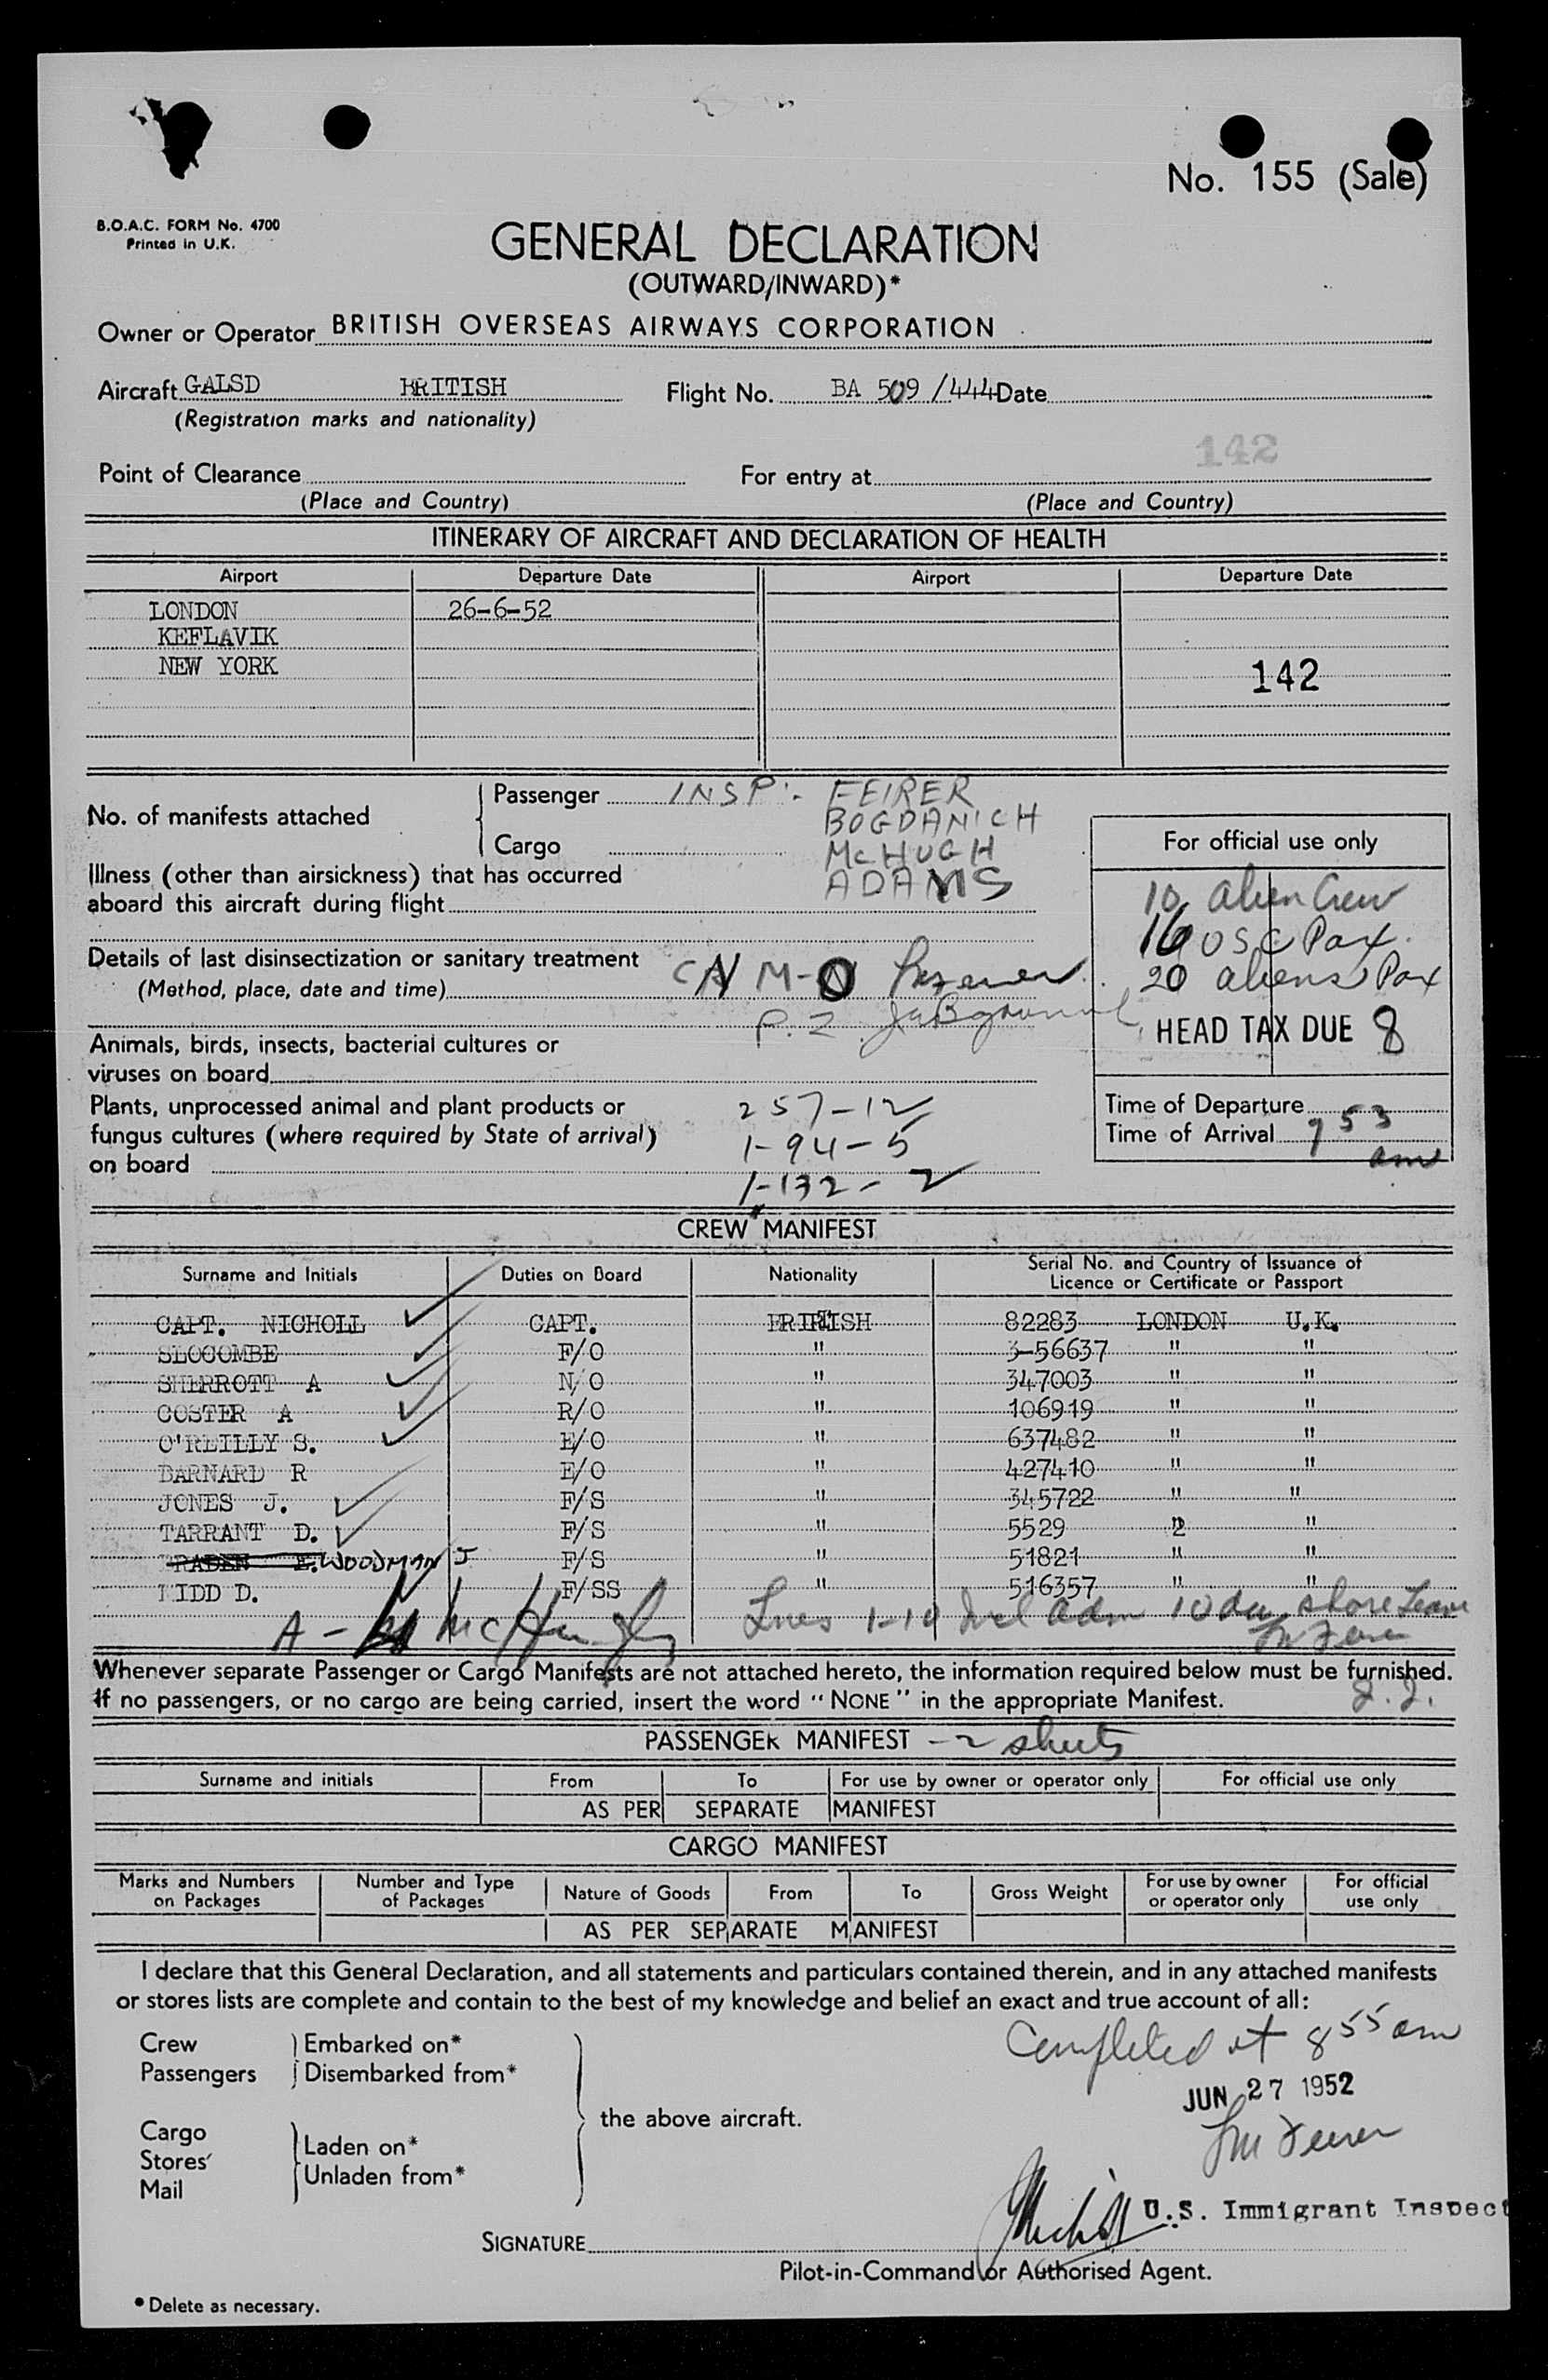 No. 155 (Sale)
B.O.A.C. FORM No. 4700
Printed in U.K.
GENERAL DECLARATION
(OUTWARD/INWARD)*
Owner or Operator BRITISH OVERSEAS AIRWAYS CORPORATION
Aircraft GALSD BRITISH Flight No. BA 509 /444 Date
(Registration marks and nationality)
142
Point of Clearance For entry at
(Place and Country) (Place and Country)
ITINERARY OF AIRCRAFT AND DECLARATION OF HEALTH
Airport Departure Date Airport Departure Date
LONDON 26-6-52
KEFLAVIK
NEW YORK 142
No. of manifests attached
Passenger INSP:- FEIRER
BOGDANICH
Cargo McHUGH
ADAMS
Illness (other than airsickness) that has occurred
aboard this aircraft during flight
Details of last disinsectization or sanitary treatment
(Method, place, date and time)
P. Z
Animals, birds, insects, bacterial cultures or
viruses on board
Plants, unprocessed animal and plant products or
fungus cultures (where required by State of arrival)
on board
257-12
1-94-5
1-132-2
For official use only
10 alien Crew
16 USC Pax.
20 aliens Pax
HEAD TAX DUE 8
Time of Departure
Time of Arrival 7 53
am
CREW MANIFEST
Surname and Initials Duties on Board Nationality Serial No. and Country of Issuance of
Licence or Certificate or Passport
CAPT. NICHOLL CAPT. BRITISH 82283 LONDON U.K.
SLOCOMBE F/O " 3-56637 " "
SHERROTT A N/O " 347003 " "
COSTER A R/O " 106919 " "
O'REILLY S. E/O " 637482 " "
BARNARD R E/O " 427410 " "
JONES J. F/S " 345722 " "
TARRANT D. F/S " 5529 2 "
BRADEN E. WOODMAN J F/S " 51821 " "
KIDD D. F/SS " 516357 " "
A - McHugh Lines 1-10 Incl adm 10 da shore Leave
Whenever separate Passenger or Cargo Manifests are not attached hereto, the information required below must be furnished.
If no passengers, or no cargo are being carried, insert the word "NONE" in the appropriate Manifest.
PASSENGER MANIFEST - 2 sheets
Surname and initials From To For use by owner or operator only For official use only
AS PER SEPARATE MANIFEST
CARGO MANIFEST
Marks and Numbers on Packages Number and Type of Packages Nature of Goods From To Gross Weight For use by owner or operator only For official use only
AS PER SEPARATE MANIFEST
I declare that this General Declaration, and all statements and particulars contained therein, and in any attached manifests
or stores lists are complete and contain to the best of my knowledge and belief an exact and true account of all:
Crew Embarked on*
Passengers Disembarked from*
the above aircraft.
Cargo
Stores
Mail
Laden on*
Unladen from*
Completed at 8 55 am
JUN 27 1952
U.S. Immigrant Inspect
SIGNATURE
Pilot-in-Command or Authorised Agent.
* Delete as necessary.